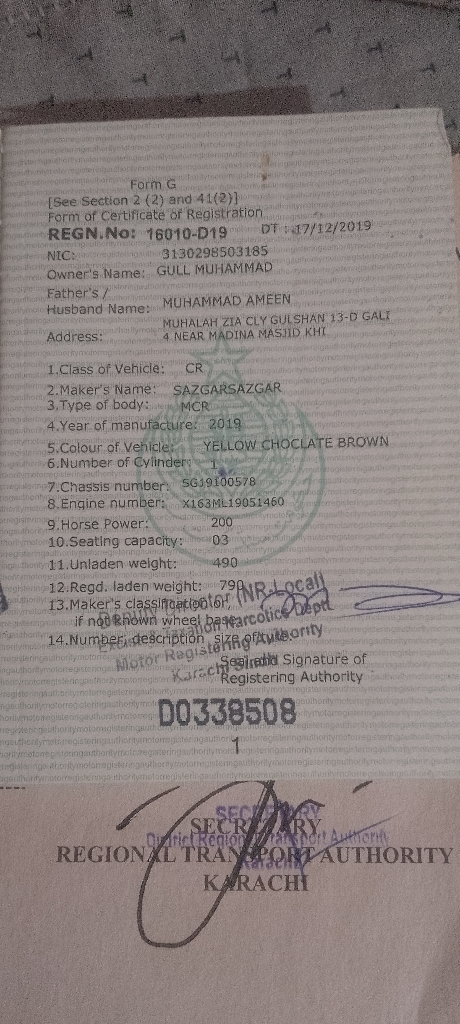 Form G
[See Section 2 (2) and 41(2)]
Form of Certificate of Registration
REGN.No: 16010-D19 DT : 17/12/2019
NIC: 3130298503185
Owner's Name: GULL MUHAMMAD
Father's /
Husband Name: MUHAMMAD AMEEN
MUHALAH ZIA CLY GULSHAN 13-D GALI
Address: 4 NEAR MADINA MASJID KHI
1.Class of Vehicle: CR
2.Maker's Name: SAZGARSAZGAR
3.Type of body: MCR
4.Year of manufacture: 2019
5.Colour of Vehicle: YELLOW CHOCLATE BROWN
6.Number of Cylinder: 1
7.Chassis number: SG19100578
8.Engine number: X163ML19051460
9.Horse Power: 200
10.Seating capacity: 03
11.Unladen weight: 490
12.Regd. laden weight: 790
13.Maker's classification or,
if not known wheel base
14.Number, description, size of tyre
(NR-Local)
Taxation Narcotics Deptt
Motor Registering Authority
Karachi Sindh
Seal and Signature of
Registering Authority
D0338508
1
SECRETARY
District Regional Transport Authority
Karachi
SECRETARY
REGIONAL TRANSPORT AUTHORITY
KARACHI